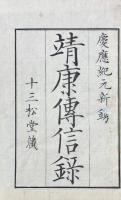 慶應紀元新鐫
靖康傳信錄
十三松堂藏